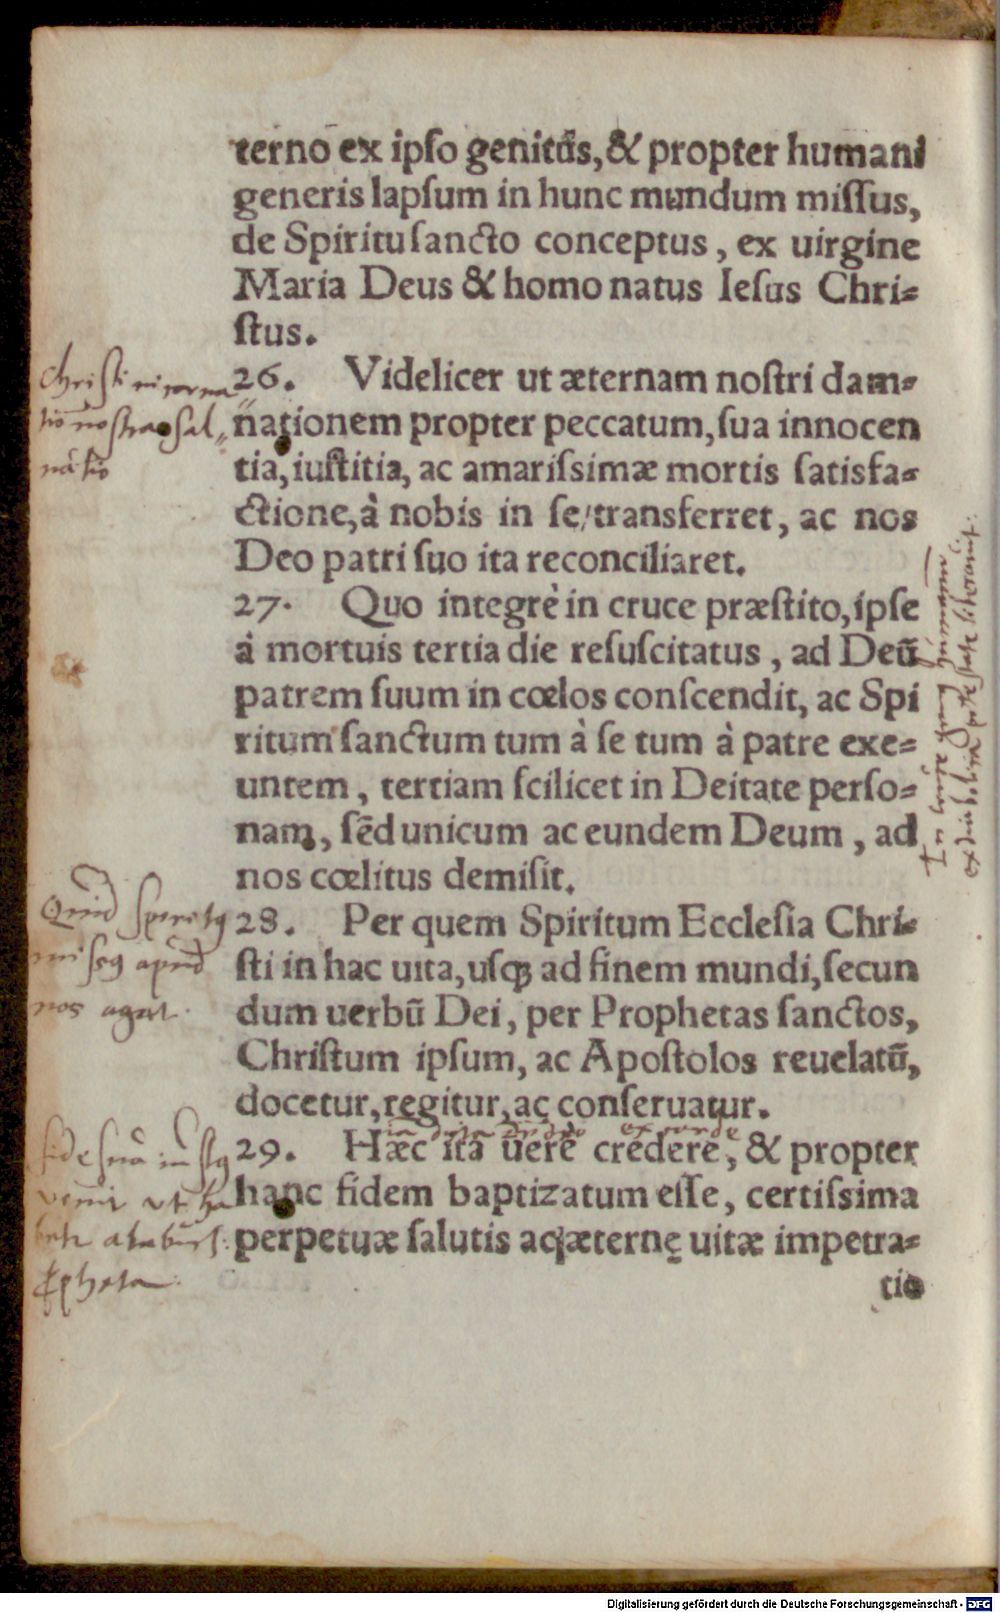 terno ex ipſo genitus, & propter humani
generis lapſum in hunc mundum miſſus,
de Spirituſancto conceptus, ex uirgine
Maria Deus & homo natus Ieſus Chri-
ſtus.
26. Videlicer ut æternam noſtri dam-
nationem propter peccatum, ſua innocen
tia, iuſtitia, ac amariſsimæ mortis ſatisfa-
ctione, à nobis in ſe/transferret, ac nos
Deo patri ſuo ita reconciliaret.
27. Quo integrè in cruce præſtito, ipſe
à mortuis tertia die reſuſcitatus, ad Deū
patrem ſuum in cœlos conſcendit, ac Spi
ritum ſanctum tum à ſe tum à patre exe-
untem, tertiam ſcilicet in Deitate perſo-
nam, ſed unicum ac eundem Deum, ad
nos cœlitus demiſit.
28. Per quem Spiritum Eccleſia Chri-
ſti in hac uita, uſq; ad finem mundi, ſecun
dum uerbū Dei, per Prophetas ſanctos,
Chriſtum ipſum, ac Apoſtolos reuelatū,
docetur, regitur, ac conſeruatur.
ex corde
29. Hæc ita uerè credere, & propter
hanc fidem baptizatum eſſe, certiſsima
perpetuæ ſalutis ac æternę uitæ impetra-
tio
Christi
nos agat.
Digitalisierung gefördert durch die Deutsche Forschungsgemeinschaft - DFG